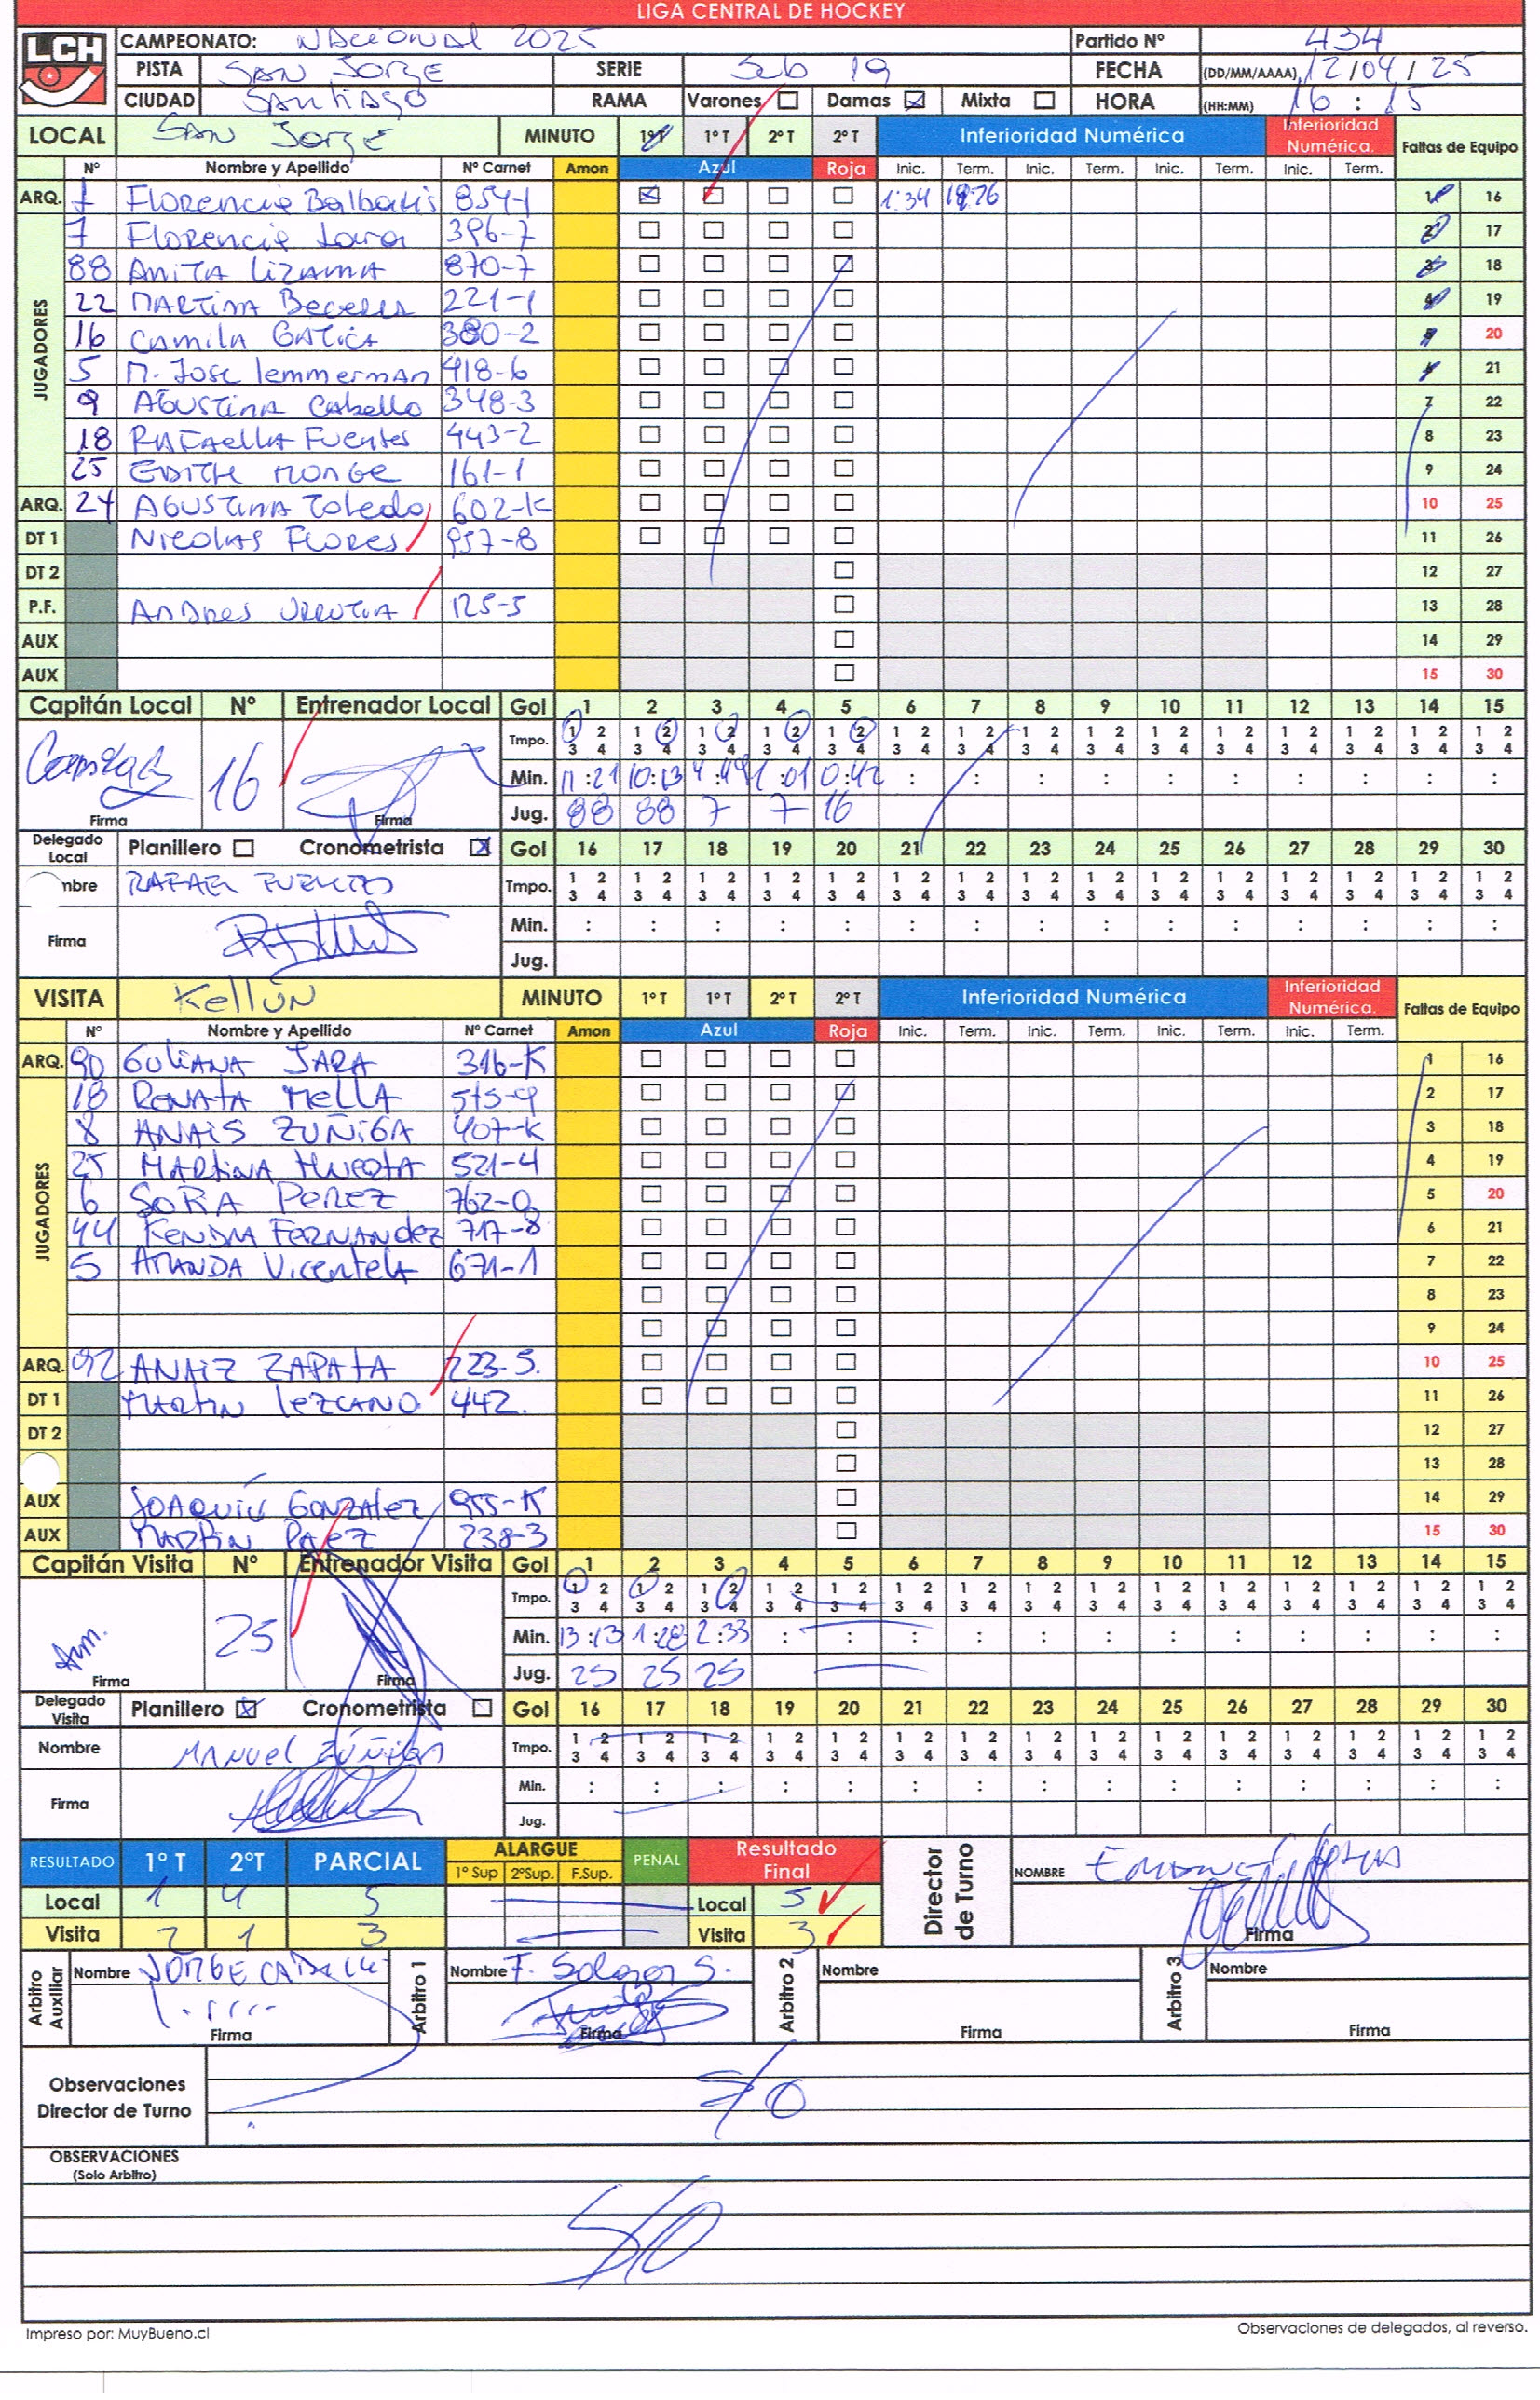 LIGA CENTRAL DE HOCKEY
LCH
CAMPEONATO: NACIONAL 2025 Partido Nº 434
PISTA SAN JORGE SERIE Sub 19 FECHA (DD/MM/AAAA) 12/04/25
CIUDAD SANTIAGO RAMA Varones Damas Mixta HORA (HH:MM) 16:15
LOCAL SAN JORGE MINUTO 1º T 1º T 2º T 2º T Inferioridad Numérica Inferioridad Numérica. Faltas de Equipo
Nº Nombre y Apellido Nº Carnet Amon Azul Roja Inic. Term. Inic. Term. Inic. Term. Inic. Term.
ARQ. 1 Florencia Balbatis 854-1 1:34 1 16
JUGADORES
7 Florencia Lara 396-7 2 17
88 Anita Lizama 870-7 3 18
22 Martina Becerra 221-1 4 19
16 Camila Gatica 380-2 5 20
5 M. Jose Lemmerman 418-6 6 21
9 Agustina Cabello 348-3 7 22
18 Rafaella Fuentes 443-2 8 23
25 Edith Monge 161-1 9 24
ARQ. 24 Agustina Toledo 602-K 10 25
DT 1 Nicolas Flores 957-8 11 26
DT 2 12 27
P.F. Andres Urrutia 125-5 13 28
AUX 14 29
AUX 15 30
Capitán Local Nº Entrenador Local Gol 1 2 3 4 5 6 7 8 9 10 11 12 13 14 15
Tmpo. 1 2 3 4 1 2 3 4 1 2 3 4 1 2 3 4 1 2 3 4 1 2 3 4 1 2 3 4 1 2 3 4 1 2 3 4 1 2 3 4 1 2 3 4 1 2 3 4 1 2 3 4 1 2 3 4 1 2 3 4
16 Min. 11:21 10:13 4:49 1:01 0:42 : : : : : : : : : :
Firma Firma Jug. 88 88 7 7 16
Delegado Local Planillero Cronometrista Gol 16 17 18 19 20 21 22 23 24 25 26 27 28 29 30
mbre RAFAEL FUENTES Tmpo. 1 2 3 4 1 2 3 4 1 2 3 4 1 2 3 4 1 2 3 4 1 2 3 4 1 2 3 4 1 2 3 4 1 2 3 4 1 2 3 4 1 2 3 4 1 2 3 4 1 2 3 4 1 2 3 4 1 2 3 4
Firma Min. : : : : : : : : : : : : : : :
Jug.
VISITA Kellún MINUTO 1º T 1º T 2º T 2º T Inferioridad Numérica Inferioridad Numérica. Faltas de Equipo
Nº Nombre y Apellido Nº Carnet Amon Azul Roja Inic. Term. Inic. Term. Inic. Term. Inic. Term.
ARQ. 90 GULIANA JARA 316-K 1 16
JUGADORES
18 RENATA MELLA 515-9 2 17
8 ANAIS ZUÑIGA 407-K 3 18
25 MARTINA HUERTA 521-4 4 19
6 SORA PEREZ 762-0 5 20
44 KENDRA FERNANDEZ 717-8 6 21
5 AMANDA Vicentela 671-1 7 22
8 23
9 24
ARQ. 92 ANAIZ ZAPATA 223-5. 10 25
DT 1 MARTIN LEZCANO 442. 11 26
DT 2 12 27
13 28
AUX JOAQUÍN GONZALEZ 955-K 14 29
AUX MARTIN PAEZ 238-3 15 30
Capitán Visita Nº Entrenador Visita Gol 1 2 3 4 5 6 7 8 9 10 11 12 13 14 15
Tmpo. 1 2 3 4 1 2 3 4 1 2 3 4 1 2 3 4 1 2 3 4 1 2 3 4 1 2 3 4 1 2 3 4 1 2 3 4 1 2 3 4 1 2 3 4 1 2 3 4 1 2 3 4 1 2 3 4 1 2 3 4
25 Min. 13:13 1:28 2:33 : : : : : : : : : : : :
Firma Firma Jug. 25 25 25
Delegado Visita Planillero Cronometrista Gol 16 17 18 19 20 21 22 23 24 25 26 27 28 29 30
Nombre MANUEL ZÚÑIGA Tmpo. 1 2 3 4 1 2 3 4 1 2 3 4 1 2 3 4 1 2 3 4 1 2 3 4 1 2 3 4 1 2 3 4 1 2 3 4 1 2 3 4 1 2 3 4 1 2 3 4 1 2 3 4 1 2 3 4 1 2 3 4
Firma Min. : : : : : : : : : : : : : : :
Jug.
RESULTADO 1º T 2ºT PARCIAL ALARGUE 1º Sup 2ºSup. F.Sup. PENAL Resultado Final Director de Turno NOMBRE
Local 1 4 5 Local 5
Visita 2 1 3 Visita 3 Firma
Arbitro Auxiliar Nombre JORGE Firma Arbitro 1 Nombre F. Solazar S. Firma Arbitro 2 Nombre Firma Arbitro 3 Nombre Firma
Observaciones Director de Turno S/O
OBSERVACIONES
(Solo Arbitro)
S/O
Impreso por: MuyBueno.cl Observaciones de delegados, al reverso.